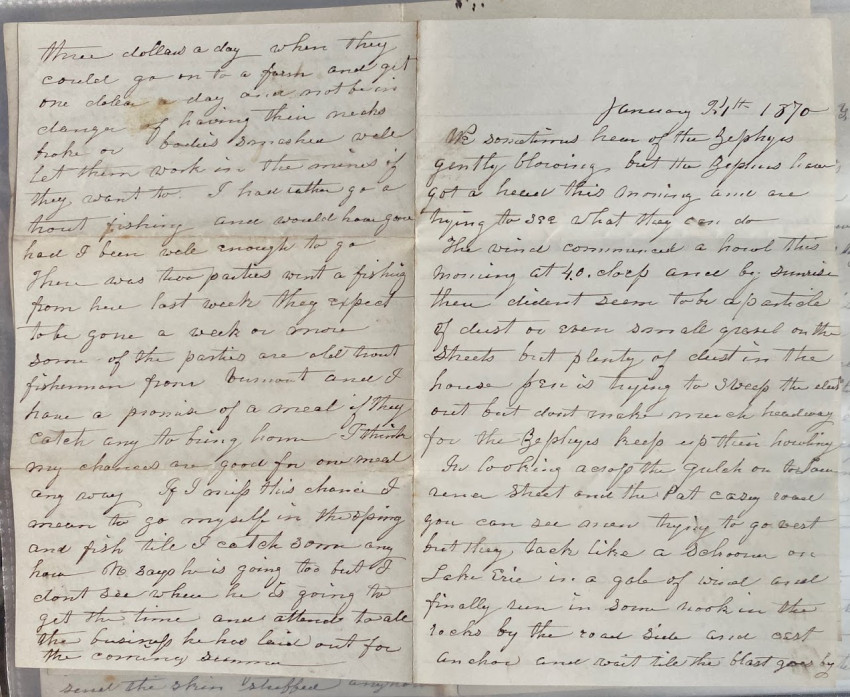 three dollars a day when they
could go on to a farm and get
one doler a day and not be in
danger of having their necks
broke or bodies smashed well
let them work in the mines if
they want to. I had rather go a
trout fishing and would have gone
had I been well enough to go
There was two parties went a fishing
from here last week they expect
to be gone a week or more
some of the parties are old trout
fisherman from Vumont and I
have a promise of a meal if they
catch any to bring home I think
my chances are good for one meal
any way If I miss this chance I
mean to go myself in the sping
and fish till I catch some any
how says he is going too but I
dont see where he is going to
get the time and attend to all
the business he has laid out for
the coming summer
January 24th 1870
We sometimes hear of the Zephyrs
gently blowing, but the Zephyrs have
got a head this morning and are
trying to see what they can do
The wind commenced a howl this
morning at 4.O.clock and by sunrise
there dident seem to be a particle
of dust or even small gravel on the
streets but plenty of dust in the
house is trying to sweep the dust
out but dont make much headway
for the Zephyrs keep up their howling
In looking across the gulch on
street and the Pat Casey road
you can see men trying to go west
but they tack like a schooner on
Lake Erie in a gale of wind and
finally run in some nook in the
rocks by the road side and cast
anchor and wait till the blast goes by
send the skin stuffed